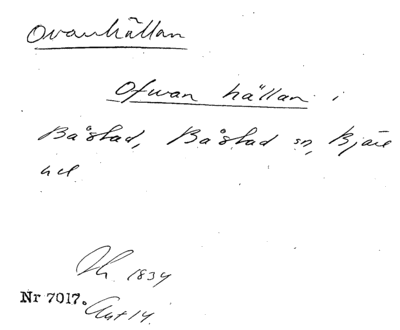 Ovanhällan
Ofwan hällan i
Båstad, Båstad sn, Bjäre
hd
Lh. 1834
Nr 7017. Akt 14.